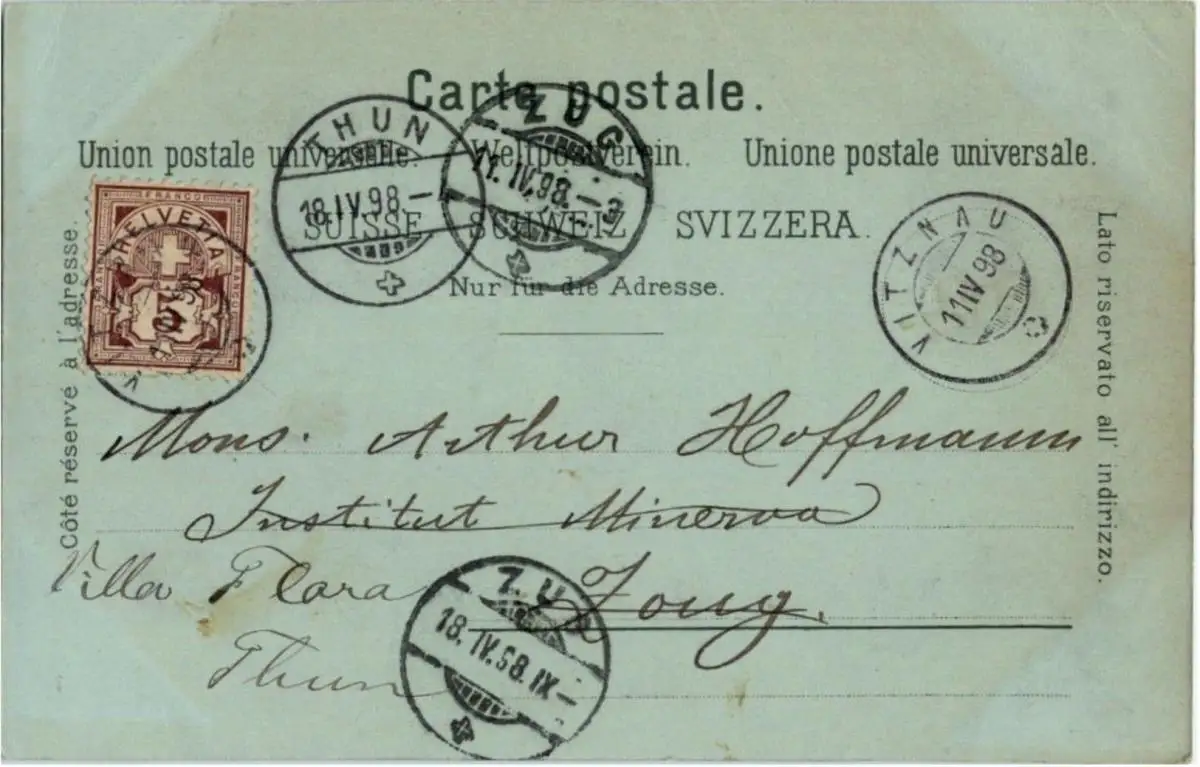 Carte postale.
Union postale universelle. Weltpostverein. Unione postale universale.
SUISSE SCHWEIZ SVIZZERA.
Nur für die Adresse.
Côté réservé à l'adresse.
Lato riservato all' indirizzo.
THUN
18.IV.98.-1
ZUG
11.IV.98.-3
VITZNAU
11 IV 98
FRANCO
HELVETIA
FRANCO
FRANCO
10
Mons. Arthur Hoffmann
Institut Minerva
Zoug.
Villa Flora
Thun
ZUG
18.IV.98.IX-